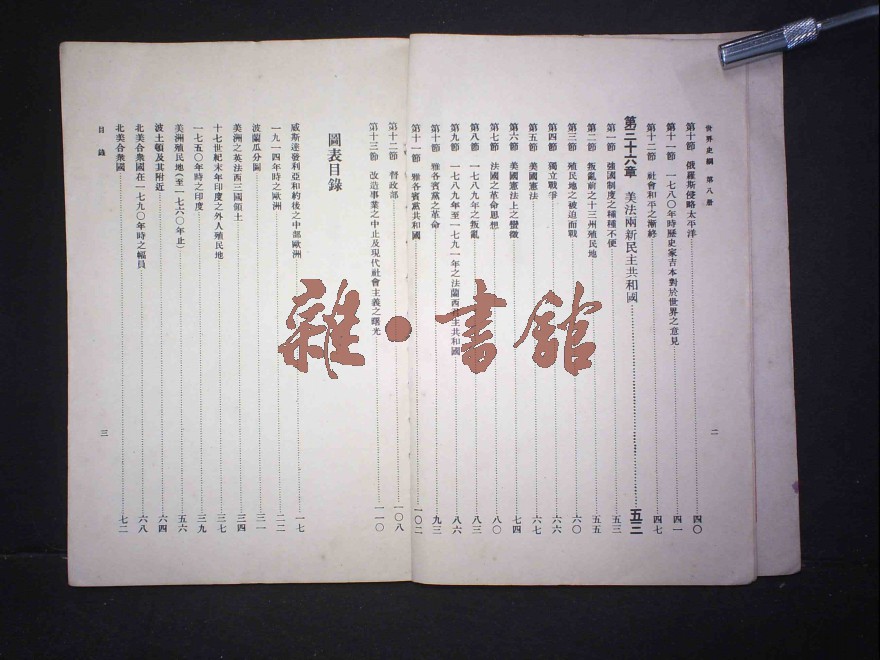 世界史綱 第八册
第十節 俄羅斯侵略太平洋 四〇
第十一節 一七八〇年時歷史家吉本對於世界之意見 四一
第十二節 社會和平之漸終 四七
第三十六章 美法兩新民主共和國 五三
第一節 強國制度之種種不便 五三
第二節 叛亂前之十三州殖民地 五五
第三節 殖民地之被迫而戰 六〇
第四節 獨立戰爭 六六
第五節 美國憲法 六七
第六節 美國憲法上之蠻徵 七四
第七節 法國之革命思想 八〇
第八節 一七八九年之叛亂 八三
第九節 一七八九年至一七九一年之法蘭西君主共和國 八六
第十節 雅各賓黨之革命 九三
二
第十一節 雅各賓黨共和國 一〇二
第十二節 督政部 一〇八
第十三節 改造事業之中止及現代社會主義之曙光 一一〇
圖表目錄
威斯達發利亞和約後之中部歐洲 一七
一九一四年時之歐洲 二二
波蘭瓜分圖 三一
美洲之英法西三國領土 三四
十七世紀末年印度之外人殖民地 三七
一七五〇年時之印度 三九
美洲殖民地(至一七六〇年止) 五六
波士頓及其附近 六四
北美合衆國在一七九〇年時之幅員 六八
北美合衆國 七二
目錄
三
雜·書館